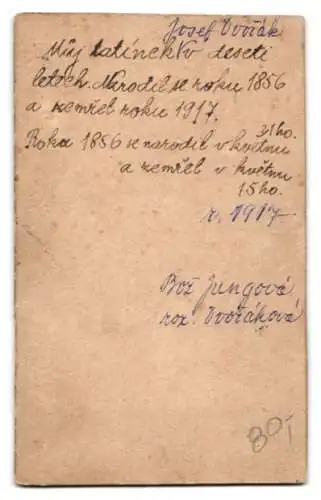 Josef Dvořák
Můj tatínek v deseti
letech. Narodil se roku 1856
a zemřel roku 1917.
31ho.
Roku 1856 se narodil v květnu
a zemřel v květnu
15ho.
r. 1917
Bož Jungová
roz. Dvořáková
80,-